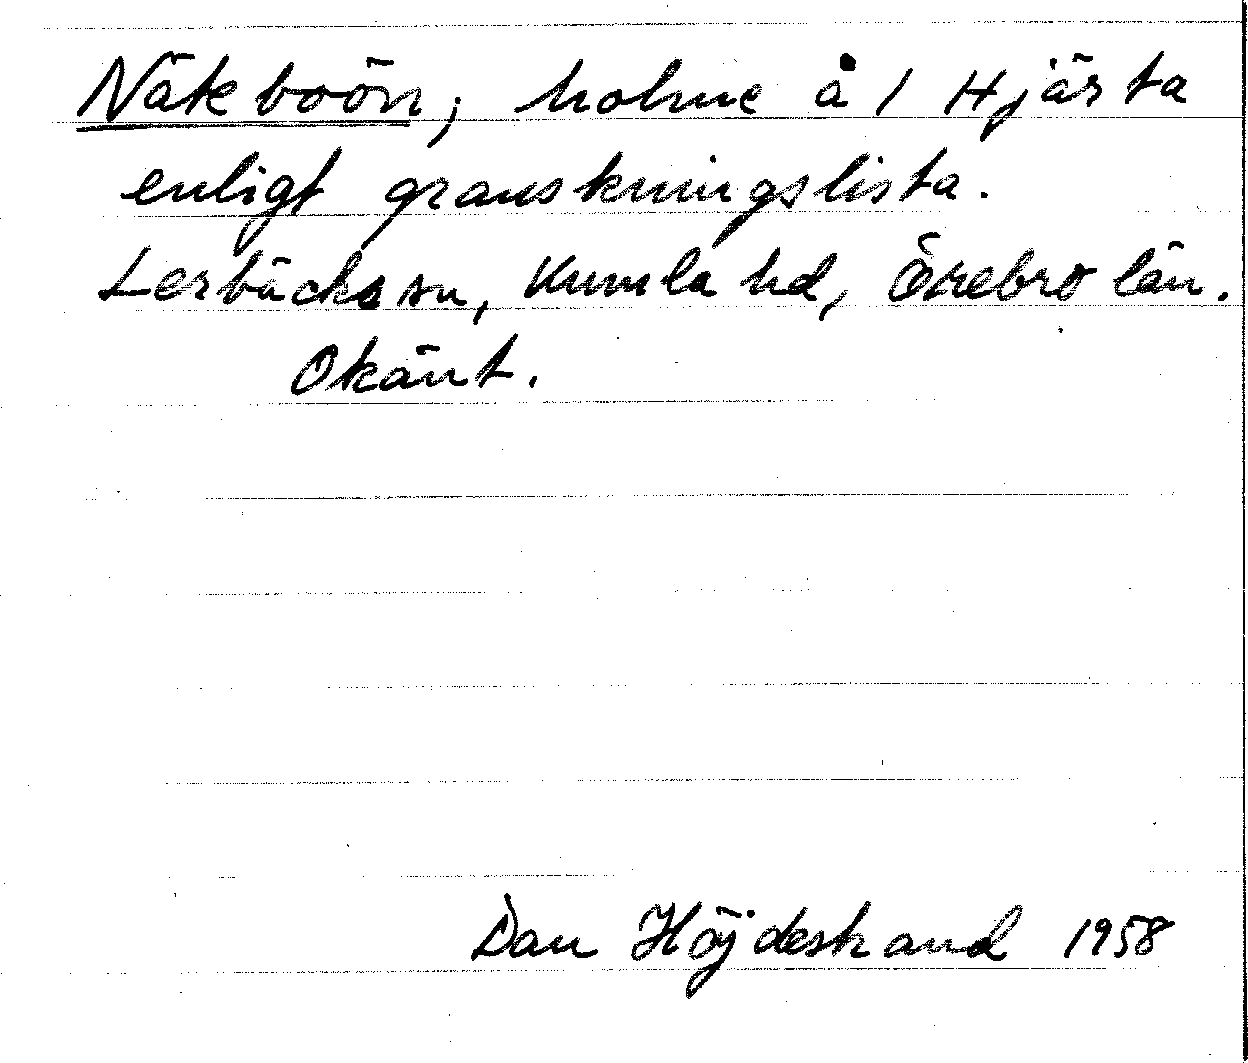 Näkboön, holme å 1 Hjärta
enligt granskningslista.
Lerbäcks sn, Kumla hd, Örebro län.
Okänt.
Dan Höjdestrand 1958